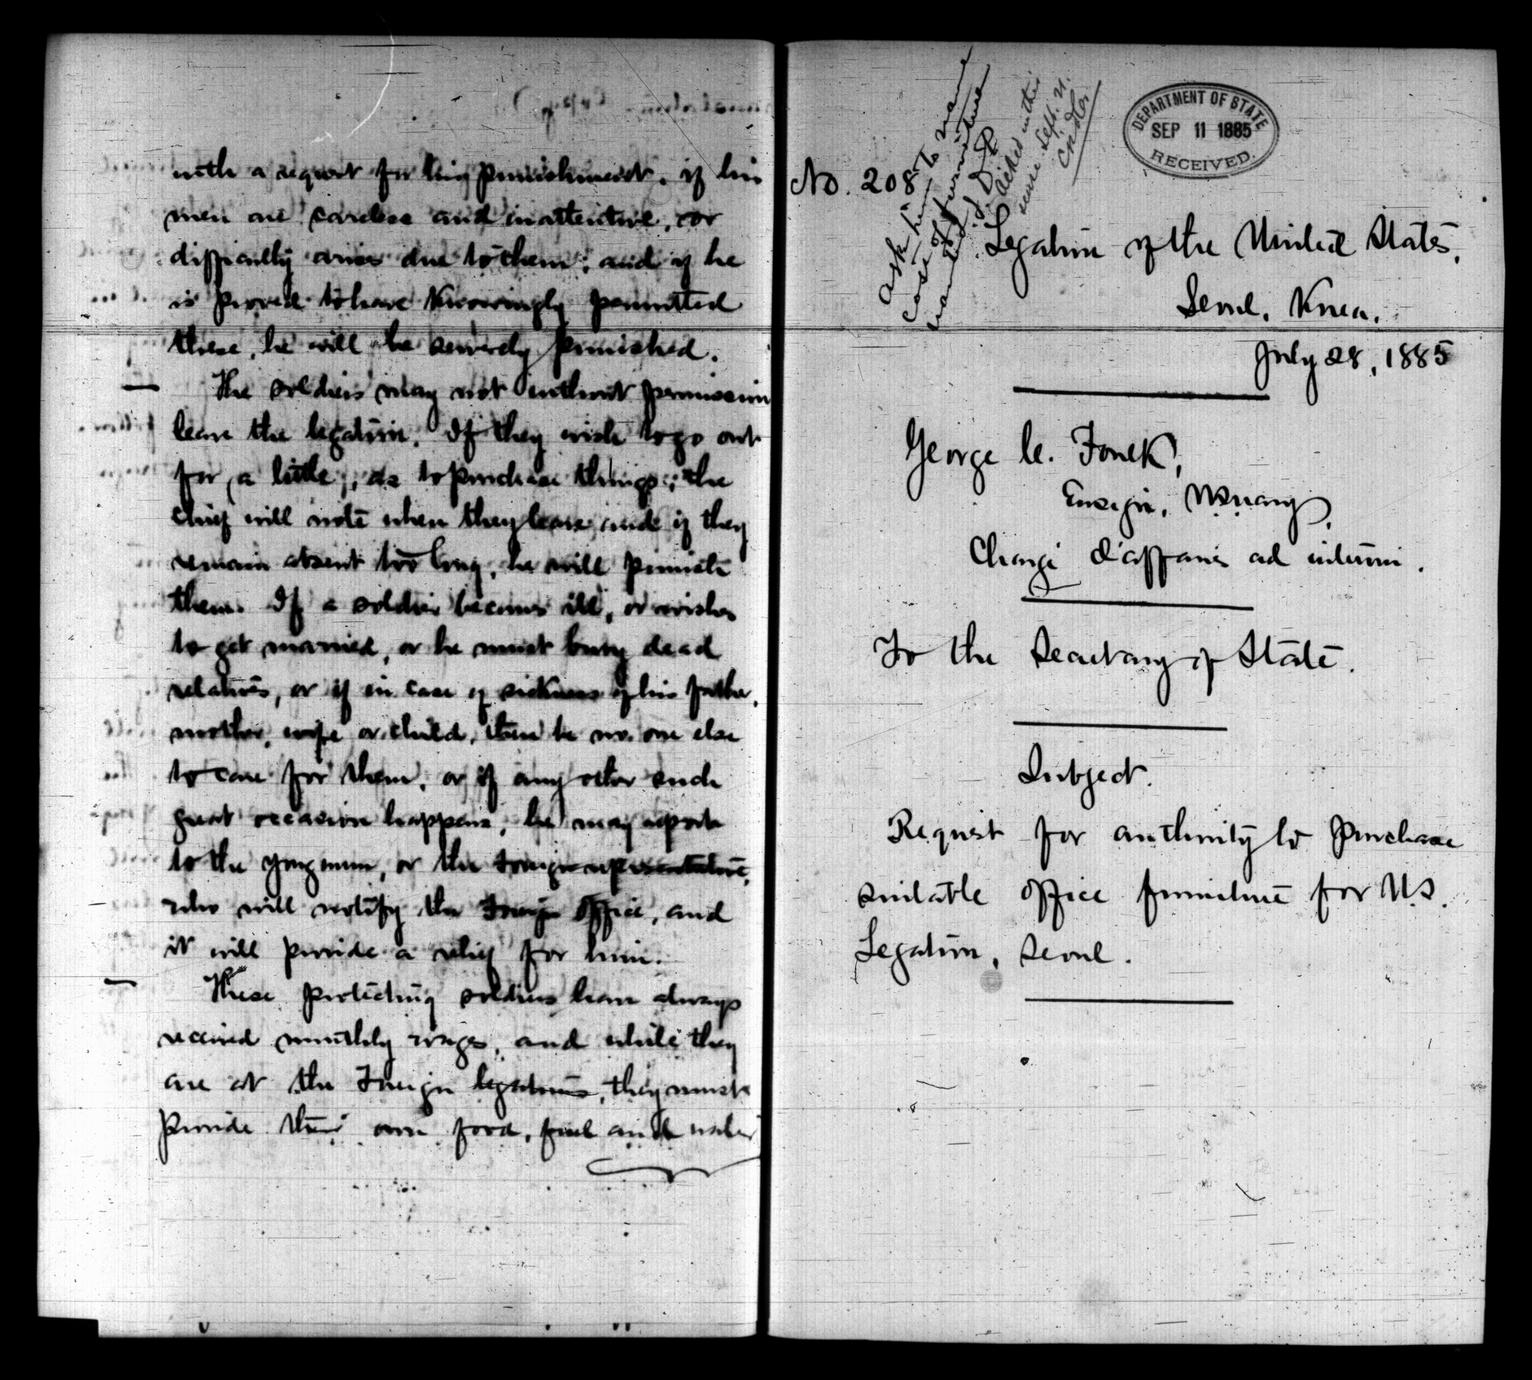 with a request for his punishment. if his
men are careless and inattentive, or
difficulty arises due to them; and if he
is proved to have knowingly permitted
these, he will be severely punished.
The soldiers may not without permission
leave the legation. If they wish to go out
for a little, as to purchase things, the
chief will note when they leave, and if they
remain absent too long, he will punish
them. If a soldier becomes ill, or wishes
to get married, or he must bury dead
relatives, or if in case of sickness of his father,
mother, wife or child, there be no one else
to care for them, or if any other such
great occasion happens, he may report
to the yongmun, or the Foreign representative,
who will notify the Foreign Office, and
it will provide a relief for him.
These protecting soldiers have always
received monthly wages, and while they
are at the Foreign legations, they must
provide their own food, fuel and water
No. 208
Ask him to name
cost of furniture
wanted
DEPARTMENT OF STATE
SEP 11 1885
RECEIVED.
Legation of the United States,
Seoul, Korea.
July 28, 1885
George C. Foulk,
Ensign, U.S. Navy,
Chargé d'affaires ad interim.
To the Secretary of State.
Subject.
Request for authority to purchase
suitable office furniture for U.S.
Legation, Seoul.